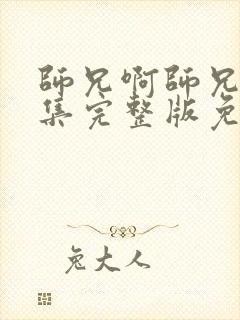 師兄啊師兄
集完整版免
兔大人